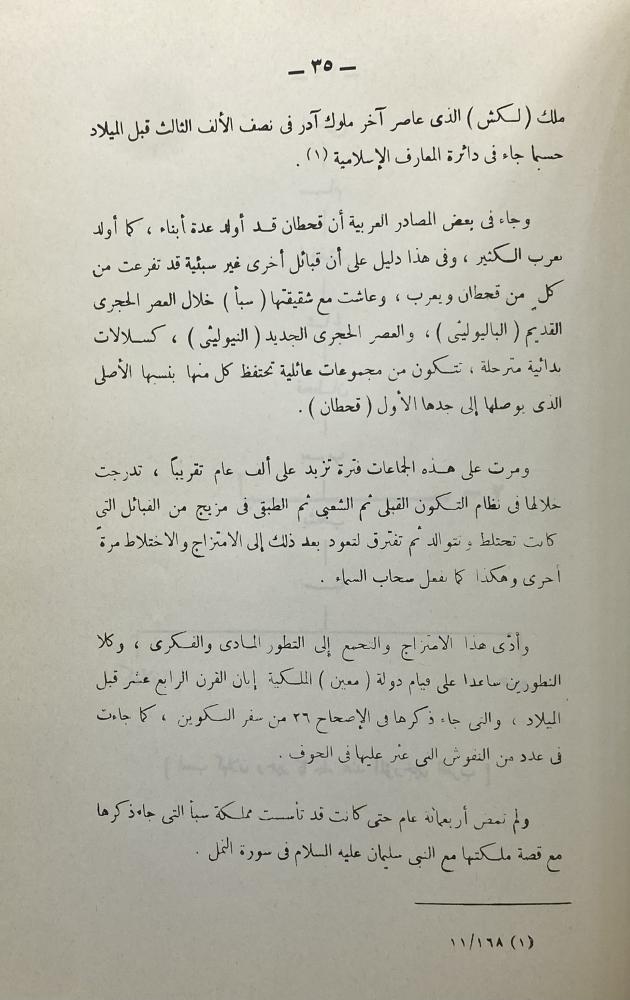 — ٣٥ —
ملك ( لـكش ) الذى عاصر آخر ملوك آدر فى نصف الألف الثالث قبل الميلاد
حسبما جاء فى دائرة المعارف الإسلامية (١) .
وجاء فى بعض المصادر العربية أن قحطان قـد أولد عدة أبناء ، كما أولد
يعرب الـكثير ، وفى هذا دليل على أن قبائل أخرى غير سبئية قد تفرعت من
كل من قحطان ويعرب ، وعاشت مع شقيقتها ( سبأ ) خلال العصر الحجرى
القديم ( الباليوليثى ) ، والعصر الحجرى الجديد ( النيوليثى ) ، كسـلالات
بدائية مترحلة ، تتـكون من مجموعات عائلية تحتفظ كل منها بنسبها الأصلى
الذى يوصلها إلى جدها الأول ( قحطان ) .
ومرت على هـذه الجماعات فترة تزيد على ألف عام تقريباً ، تدرجت
خلالها فى نظام التـكون القبلى ثم الشعبى ثم الطبقى فى مزيج من القبائل التى
كانت تختلط وتتوالد ثم تفترق لتعود بعد ذلك إلى الامتزاج والاختلاط مرة
أخرى وهكذا كما يفعل سحاب السماء .
وأدّى هذا الامتزاج والتجمع إلى التطور المـادى والفـكرى ، وكلا
التطورين ساعدا على قيام دولة ( معين ) الملـكية إبان القرن الرابع عشر قبل
الميلاد ، والتى جاء ذكرها فى الإصحاح ٢٦ من سفر التـكوين ، كما جاءت
فى عدد من النقوش التى عثر عليها فى الجوف .
ولم تمض أربعمائة عام حتى كانت قد تأسست مملـكة سبأ التى جاء ذكرها
مع قصة ملـكتها مع النبى سليمان عليه السلام فى سورة النمل .
(١) ١١/١٦٨